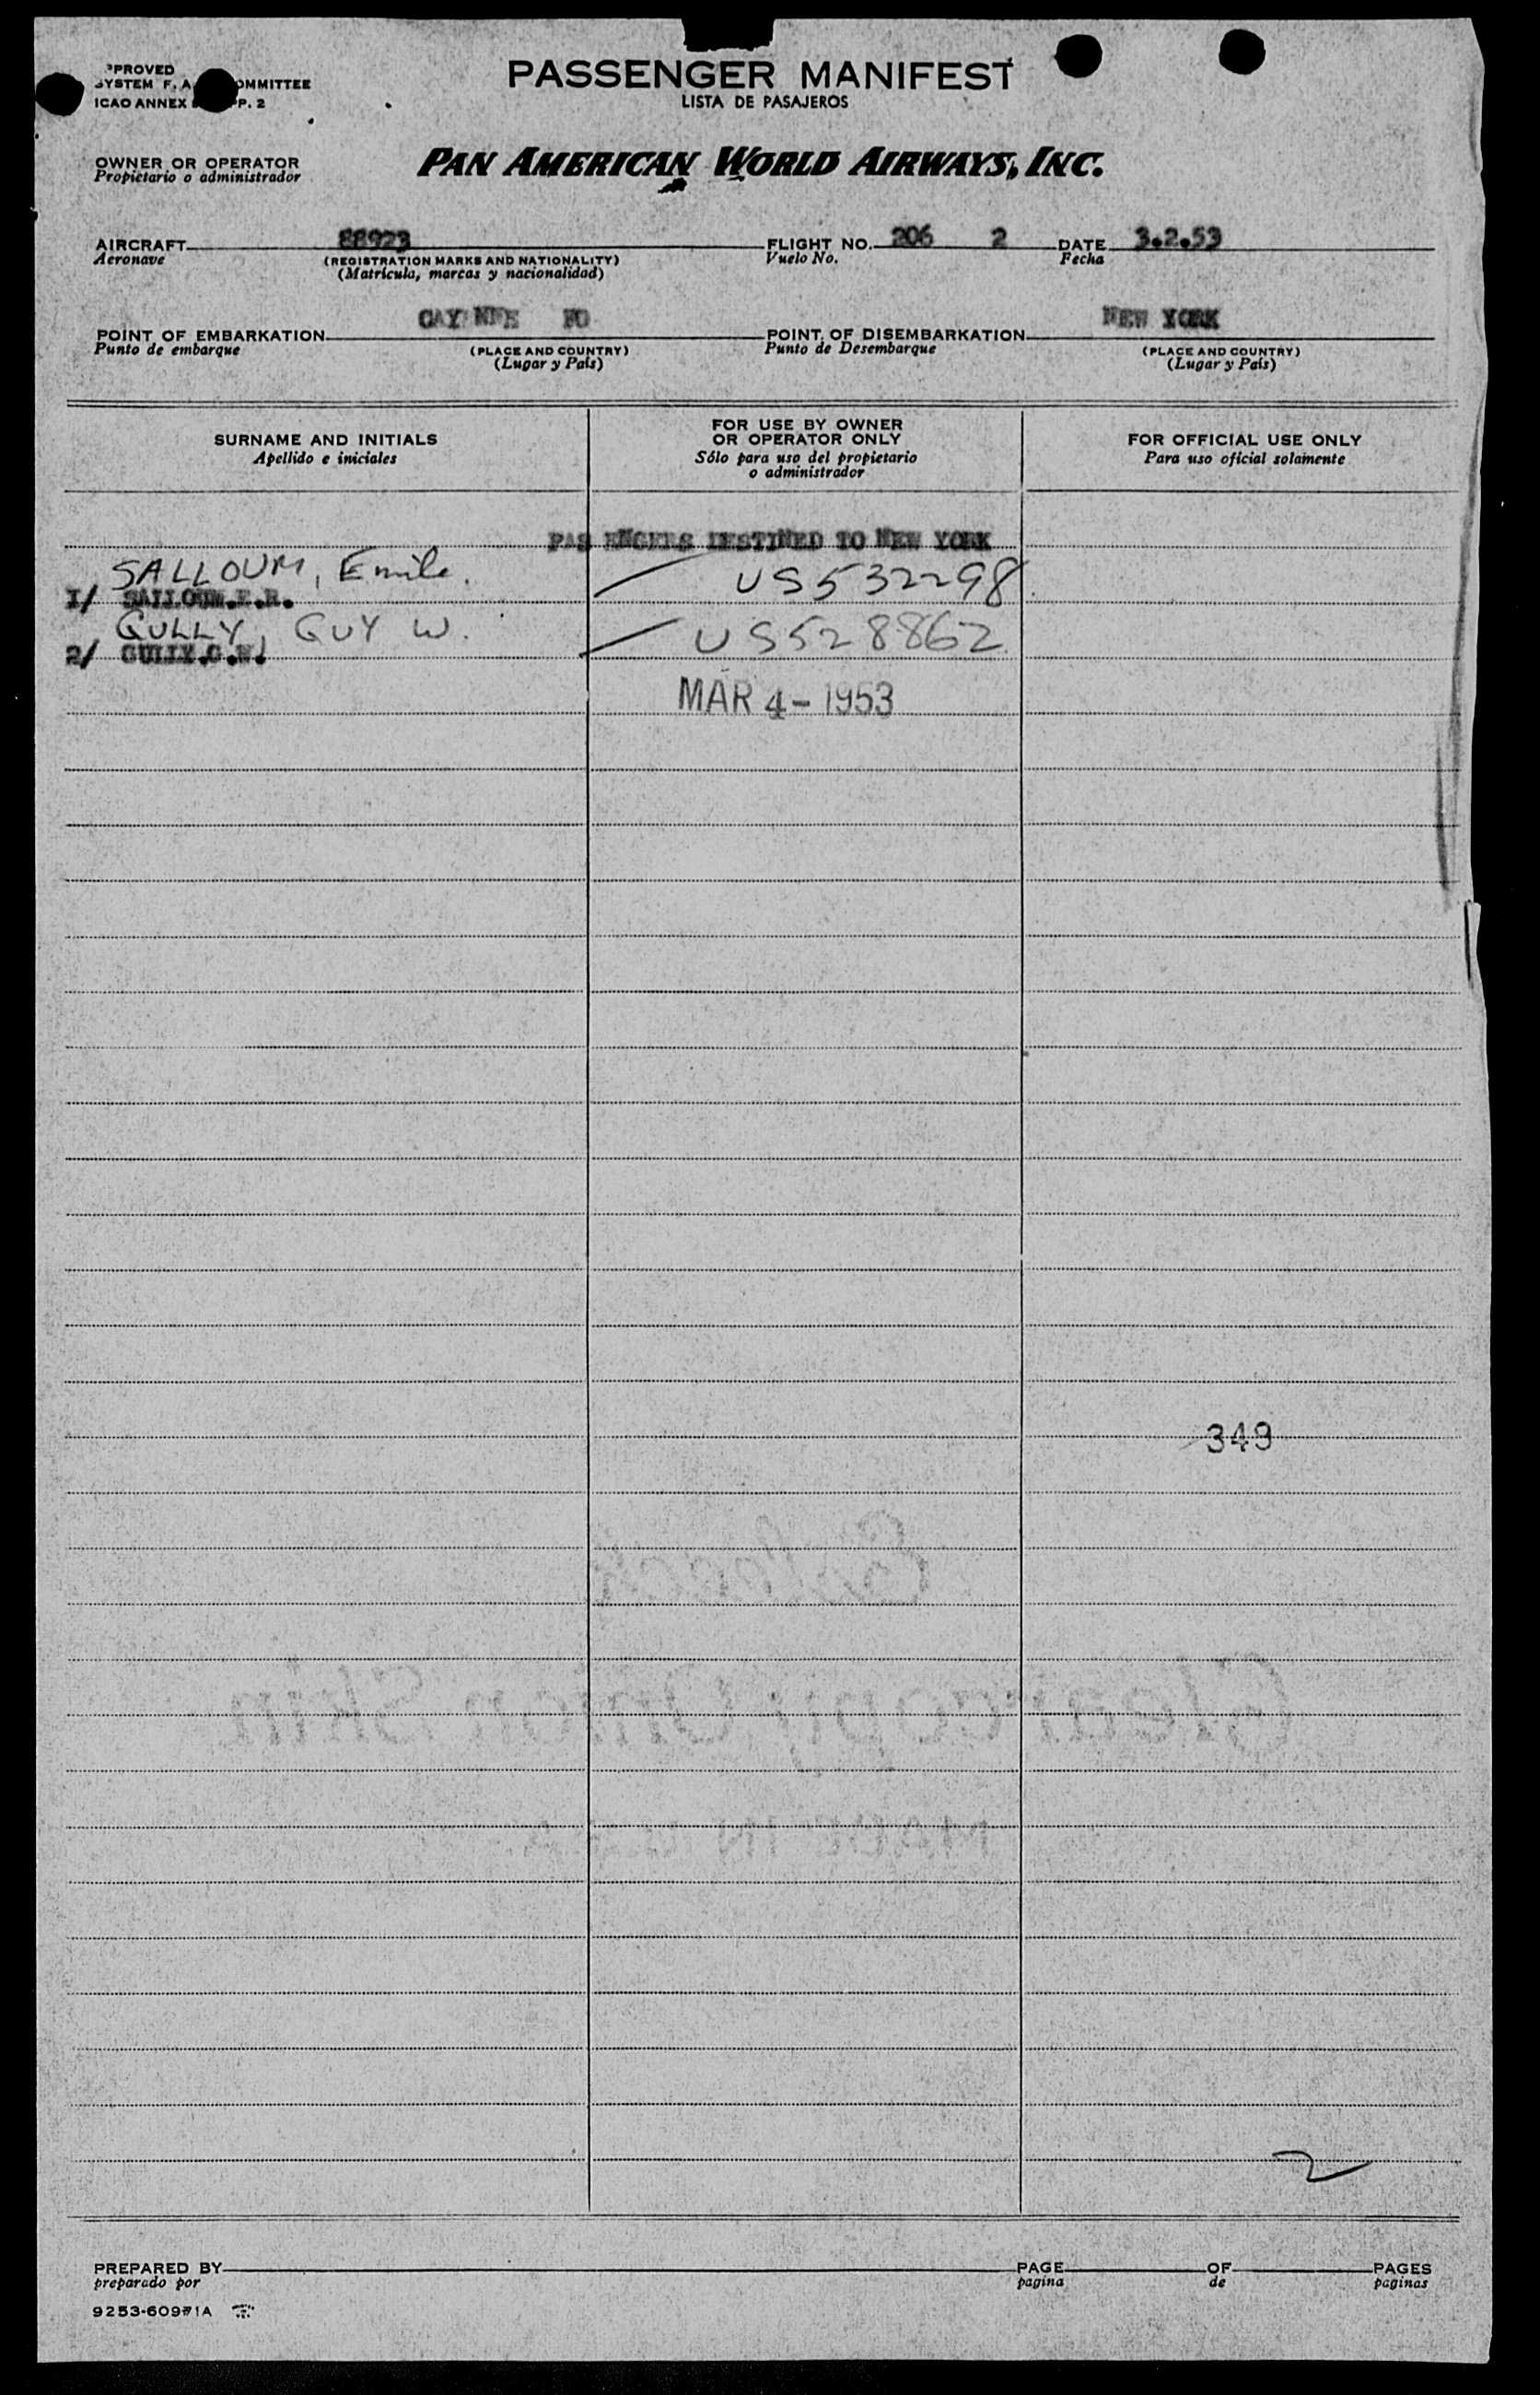 PASSENGER MANIFEST
LISTA DE PASAJEROS
PROVED
SYSTEM F. A. OMMITTEE
ICAO ANNEX P. 2
OWNER OR OPERATOR
Propietario o administrador
PAN AMERICAN WORLD AIRWAYS, INC.
AIRCRAFT 88923 FLIGHT NO. 206 2 DATE 3.2.53
Aeronave (REGISTRATION MARKS AND NATIONALITY) Vuelo No. Fecha
(Matrícula, marcas y nacionalidad)
CAYENNE NEW YORK
POINT OF EMBARKATION POINT OF DISEMBARKATION
Punto de embarque (PLACE AND COUNTRY) Punto de Desembarque (PLACE AND COUNTRY)
(Lugar y País) (Lugar y País)
SURNAME AND INITIALS
Apellido e iniciales
FOR USE BY OWNER
OR OPERATOR ONLY
Sólo para uso del propietario
o administrador
FOR OFFICIAL USE ONLY
Para uso oficial solamente
PAS ENGERS DESTINED TO NEW YORK
SALLOUM, Emile. US532298
1/ SALLOUM.E.R.
GULLY, GUY W. US528862
2/ GULLY.G.W.
MAR 4-1953
349
Clearcopy Onion Skin
MADE IN U.S.A.
2
PREPARED BY PAGE OF PAGES
preparado por pagina de paginas
9253-60971A